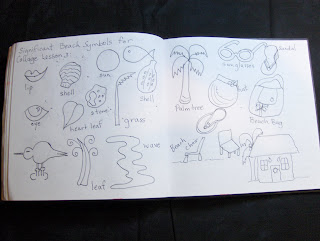 Significant Beach Symbols for
Collage Lessons:
lip
shell
sun
shell
eye
heart leaf
stone
grass
leaf
wave
Palm tree
sunglasses
Sandal
Beach Bag
Beach
chair